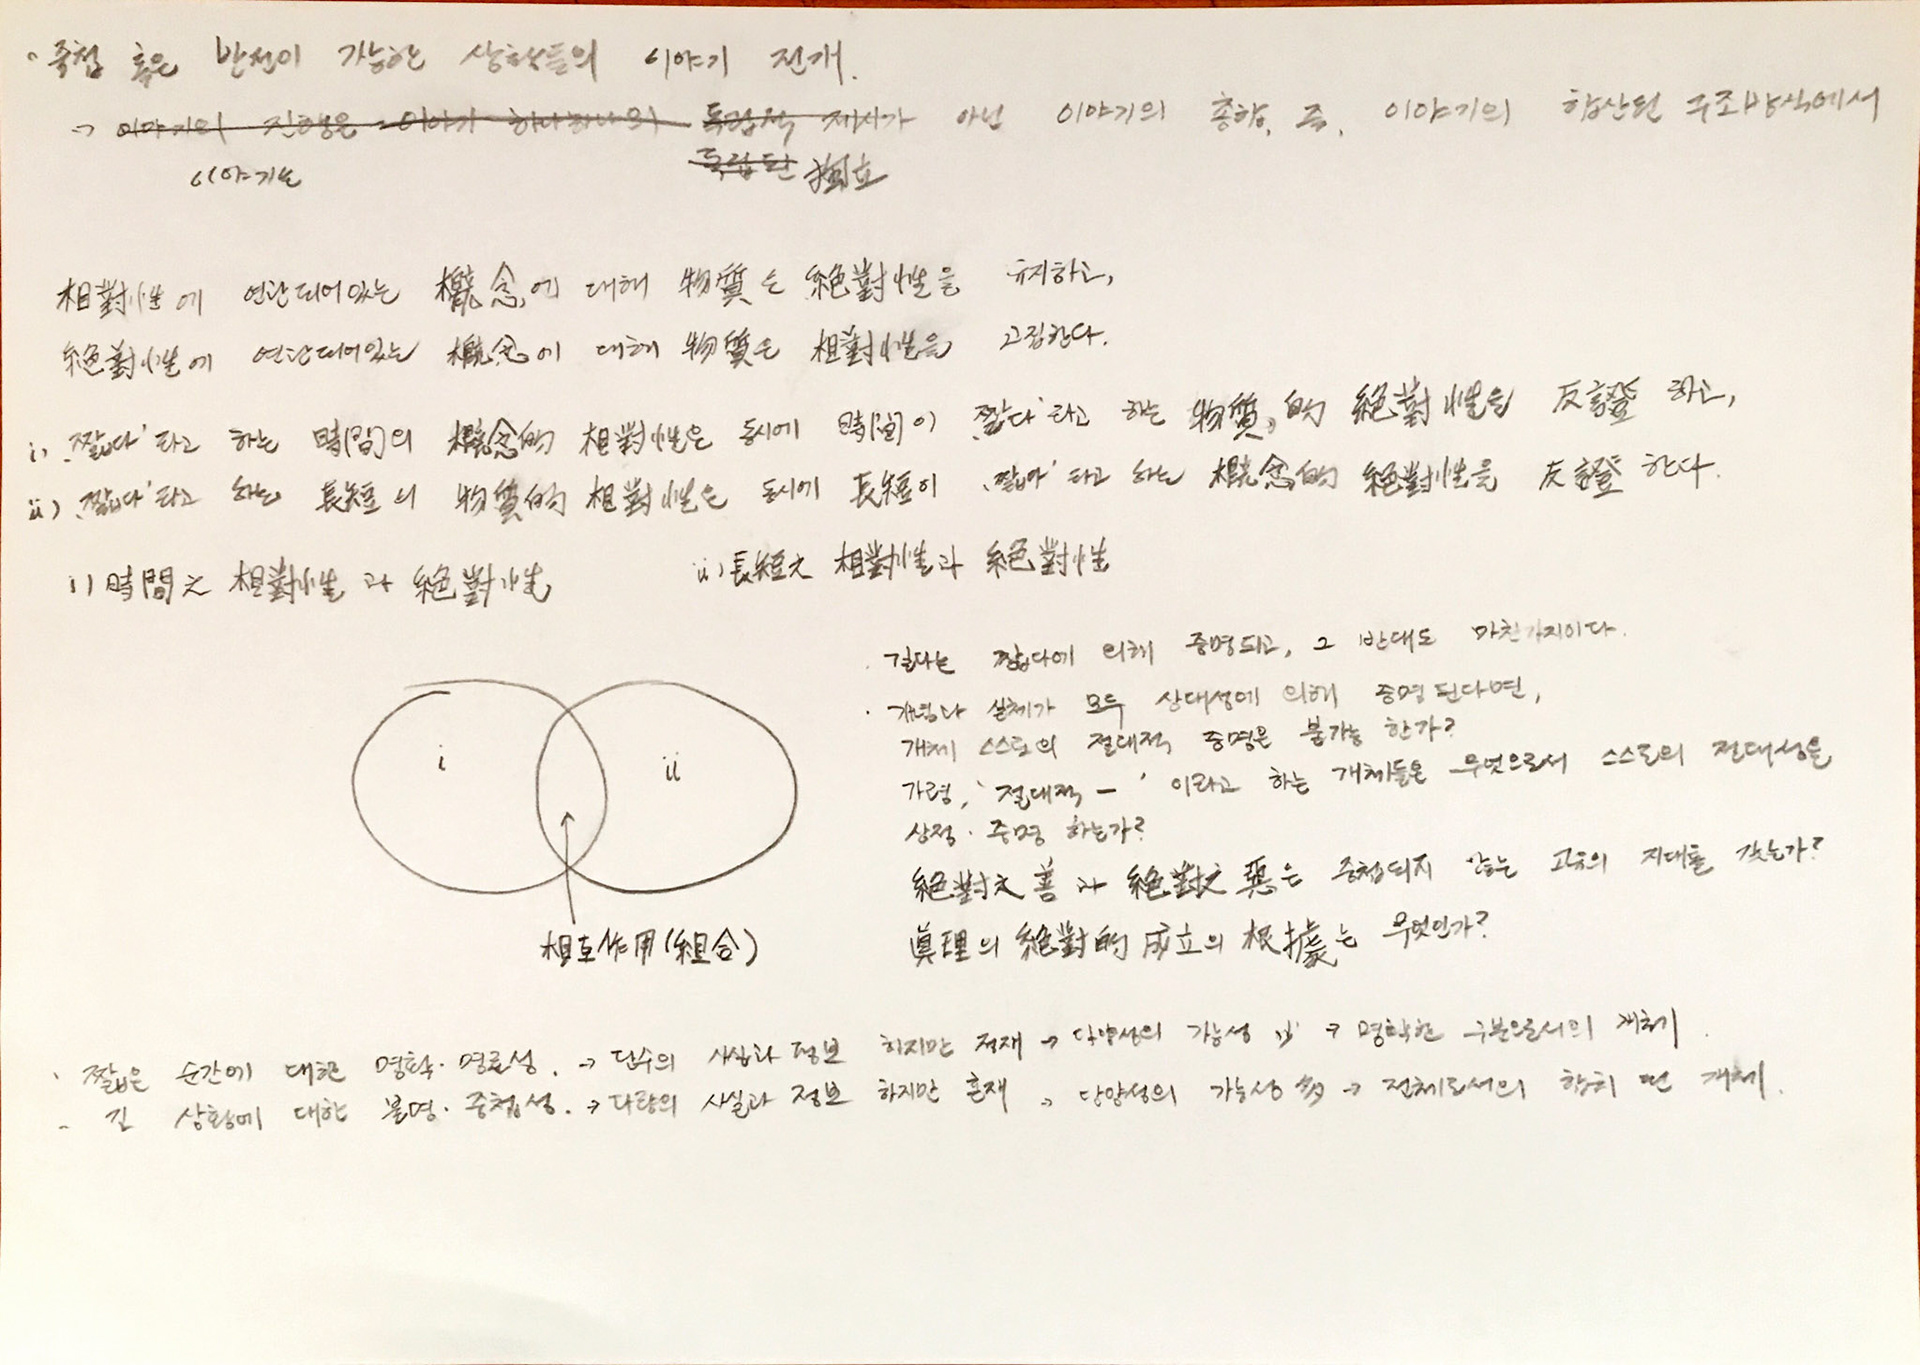 · 중첩 혹은 반전이 가능한 상황들의 이야기 전개.
→ 이야기의 진행은 이야기 하나하나의 독립적 제시가 아닌 이야기의 총합, 즉, 이야기의 합산된 구조방식에서
이야기는 독립된 獨立
相對性에 연관되어있는 概念에 대해 物質은 絶對性을 유지하고,
絶對性에 연관되어있는 概念에 대해 物質은 相對性을 고집한다.
i) '짧다'라고 하는 時間의 概念的 相對性은 동시에 時間이 '짧다'라고 하는 物質的 絶對性을 反證하고,
ii) '짧다'라고 하는 長短의 物質的 相對性은 동시에 長短이 '짧다'라고 하는 概念的 絶對性을 反證한다.
i) 時間之 相對性과 絶對性 ii) 長短之 相對性과 絶對性
· 길다는 짧다에 의해 증명되고, 그 반대도 마찬가지이다.
· 개념과 실체가 모두 상대성에 의해 증명된다면,
개체 스스로의 절대적 증명은 불가능 한가?
가령, '절대적 ー' 이라고 하는 개체들은 무엇으로서 스스로의 절대성을
상정·증명 하는가?
絶對之善과 絶對之惡은 중첩되지 않는 고유의 지대를 갖는가?
眞理의 絶對的 成立의 根據는 무엇인가?
i ii
相互作用(組合)
· 짧은 순간에 대한 명확·명료성. → 단수의 사실과 정보 하지만 적재 → 다양성의 가능성 少 → 명확한 구분으로서의 개체
· 긴 상황에 대한 불명·중첩성. → 다량의 사실과 정보 하지만 혼재 → 다양성의 가능성 多 → 전체로서의 합치 된 개체.